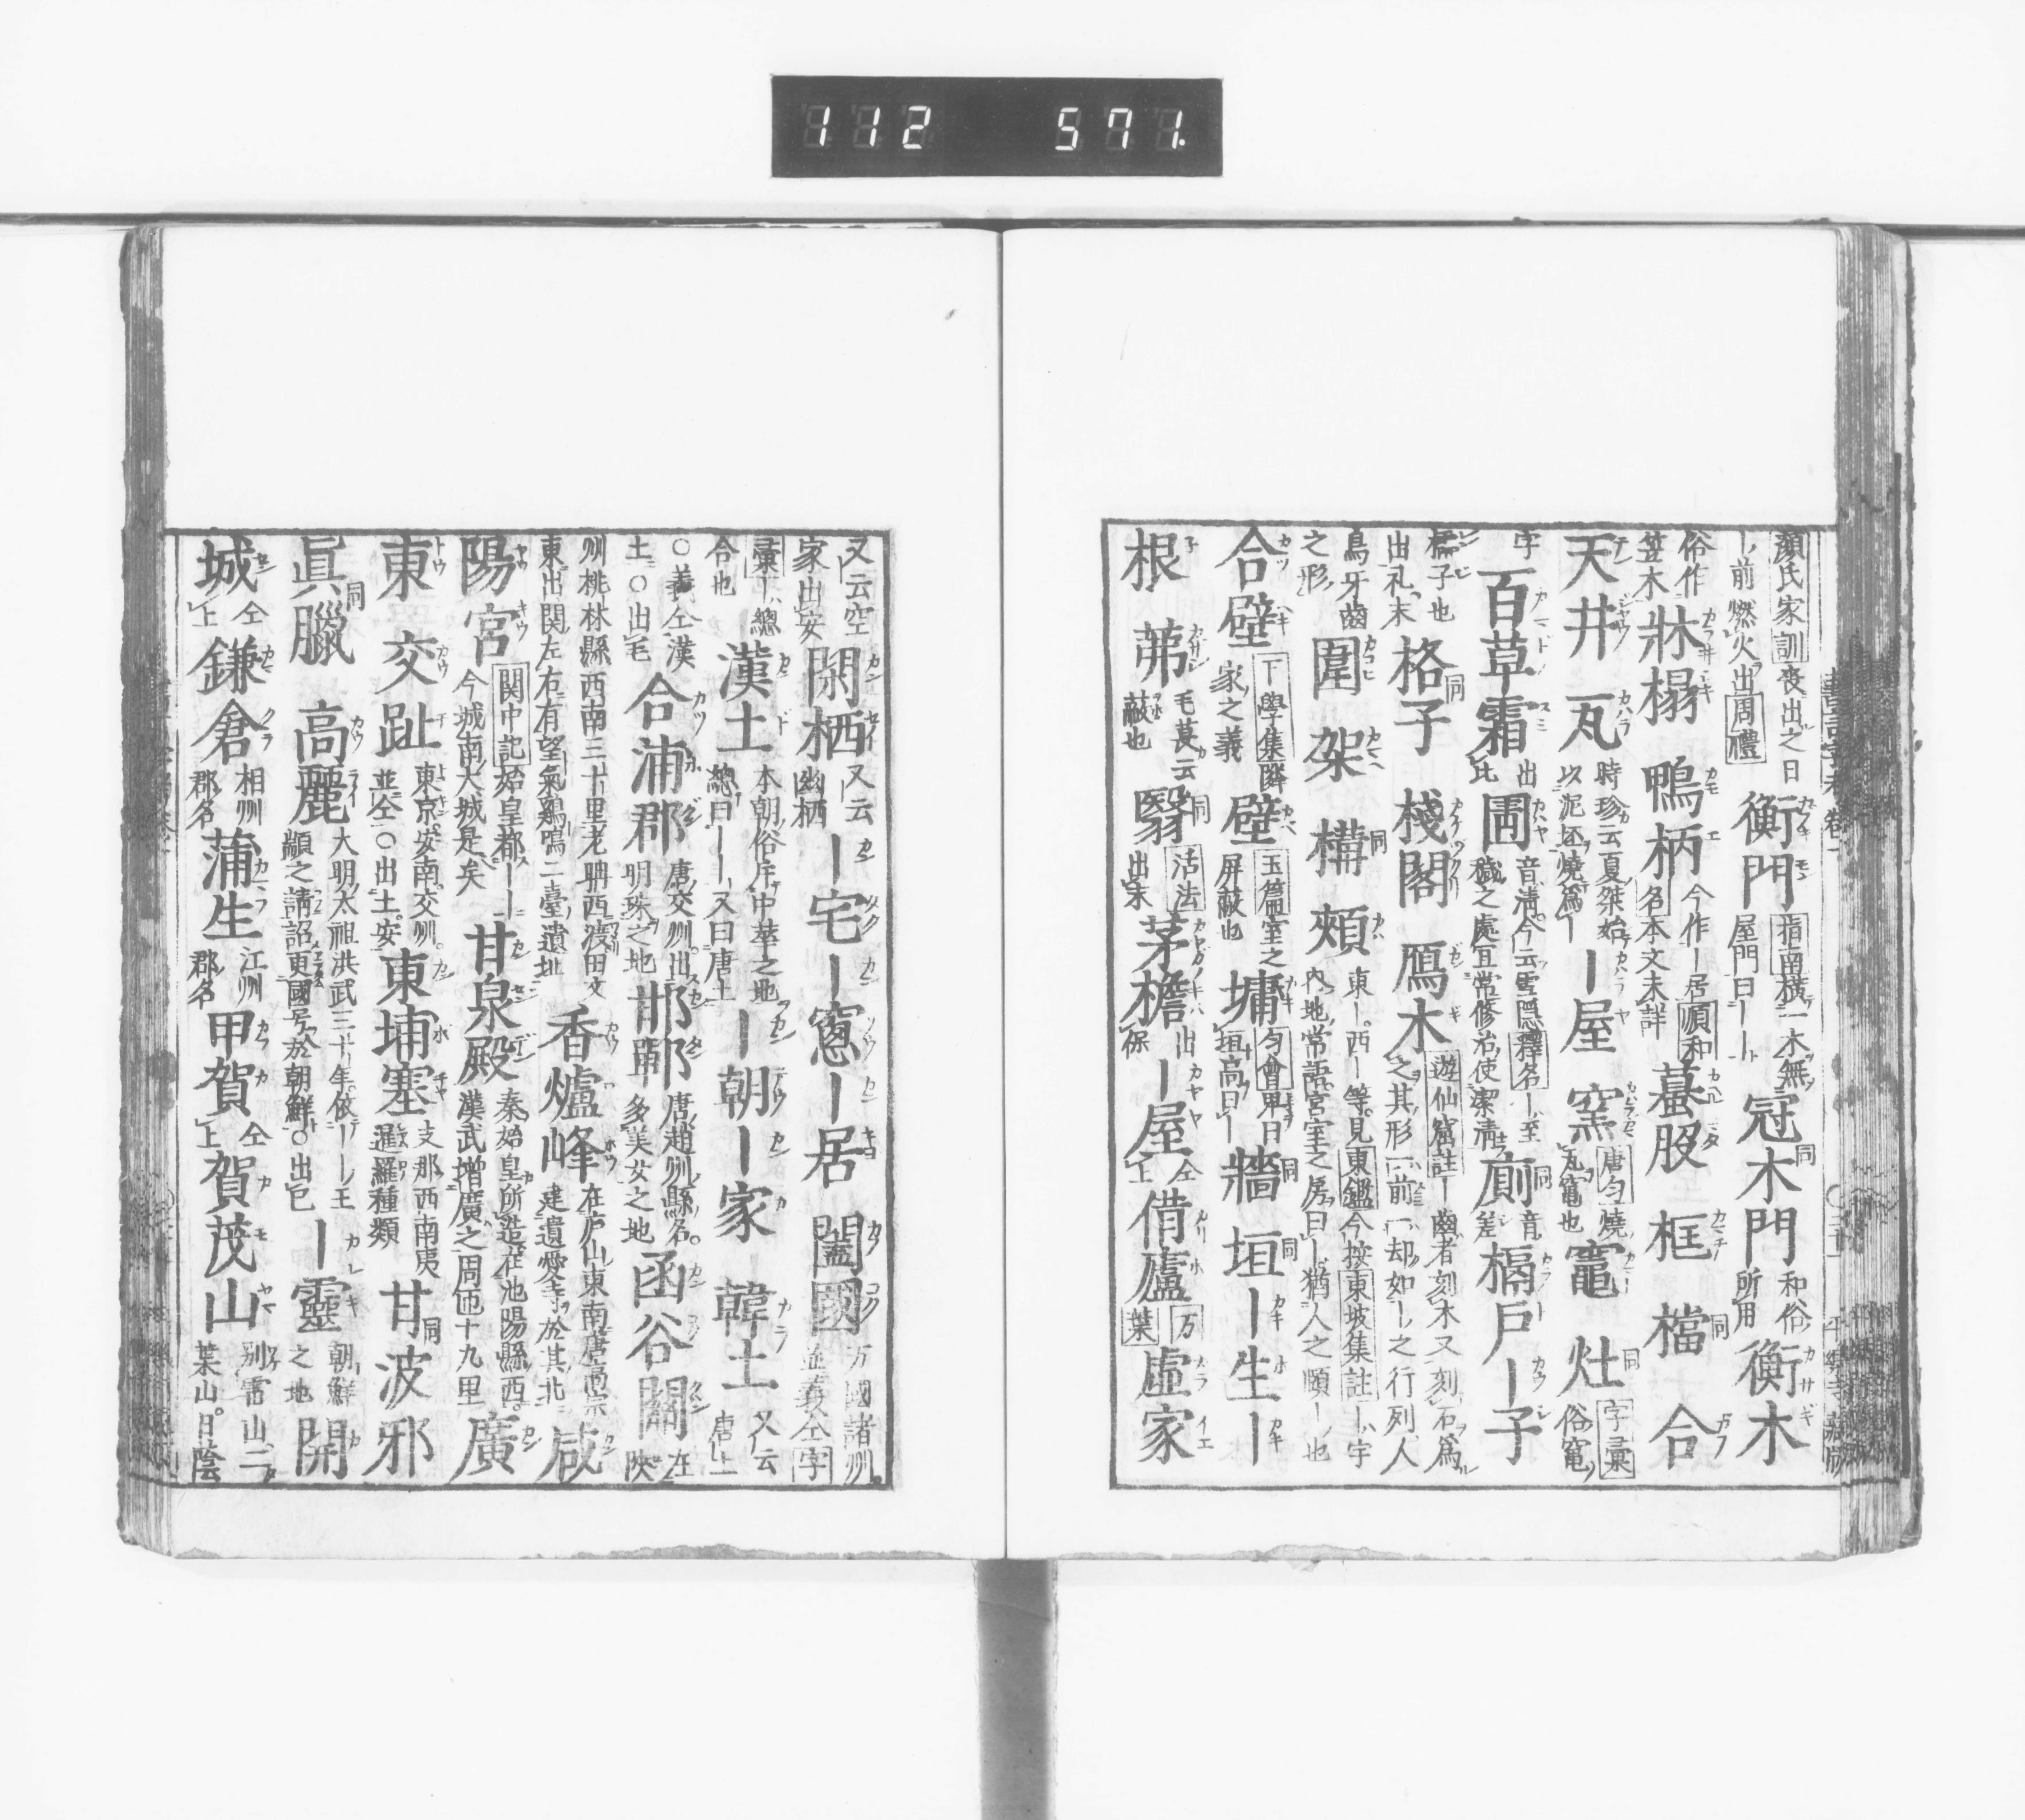 112 571.
顔氏家訓喪出之日
ー前燃火出周禮
衡門 指南橫一木無屋門曰ーー
冠木門 和俗所用
衡木
俗作笠木
牀榻
鴨柄 今作ー居順和名本文未詳
蟇股
框
檔
合
天井
瓦 時珍云夏桀始以泥坯燒爲ー
ー屋
窯 唐匀燒瓦竈也
竈
灶 字彙俗竈
字
百草霜 出比
圊 音淸今云雪隱釋名ー至穢之處宜常修治使潔淸
廁 音差
槅戸
ー子
櫺子也
出礼末
格子
棧閣
鴈木 遊仙窟註ー齒者刻木又刻石爲之其形一前一却如ー之行列人
鳥牙齒之形
圍
架
構
頰 東ー西ー等見東鑑今按東坡集註ー宇内地常語宮室之房曰ー猶人之頤ー也
合壁 下學集隣家之義
壁 玉篇室之屏蔽也
墉 匀會甲曰垣高曰ー
牆
垣
ー生
ー
根
茀 毛萇云蔽也
翳 活法出末
茅檐 出保
ー屋 仝上
借廬 万葉
虛家
又云空家出安
閑栖 又云幽栖
ー宅
ー窻
ー居
闔國 万國諸州並義仝字
彙ー總合也
漢土 本朝俗斥中華之地總曰ーー又曰唐土
ー朝
ー家
韓土 又云唐土
〇義仝漢土〇出毛
合浦郡 唐交州出明珠之地
邯鄲 唐趙州縣名多美女之地
函谷關 在陝
州桃林縣西南三十里老聃西渡田文東出関左右有望氣鷄鳴二臺遺址
香爐峰 在庐山東南唐高宗建遺愛寺於其北
咸
陽宮 関中記始皇都ーー今城南大城是矣
甘泉殿 秦始皇所造在池陽縣西漢武增廣之周匝十九里
廣
東
交趾 東京安南交州並仝〇出土安
東埔塞 支那西南夷暹羅種類
甘波邪
眞臘
高麗 大明太祖洪武三十年依ーー王顓之請詔更國号於朝鮮〇出巳
ー靈 朝鮮之地
開
城 仝上
鎌倉 相州郡名
蒲生 江州郡名
甲賀 仝上
賀茂山 別雷山二葉山日陰